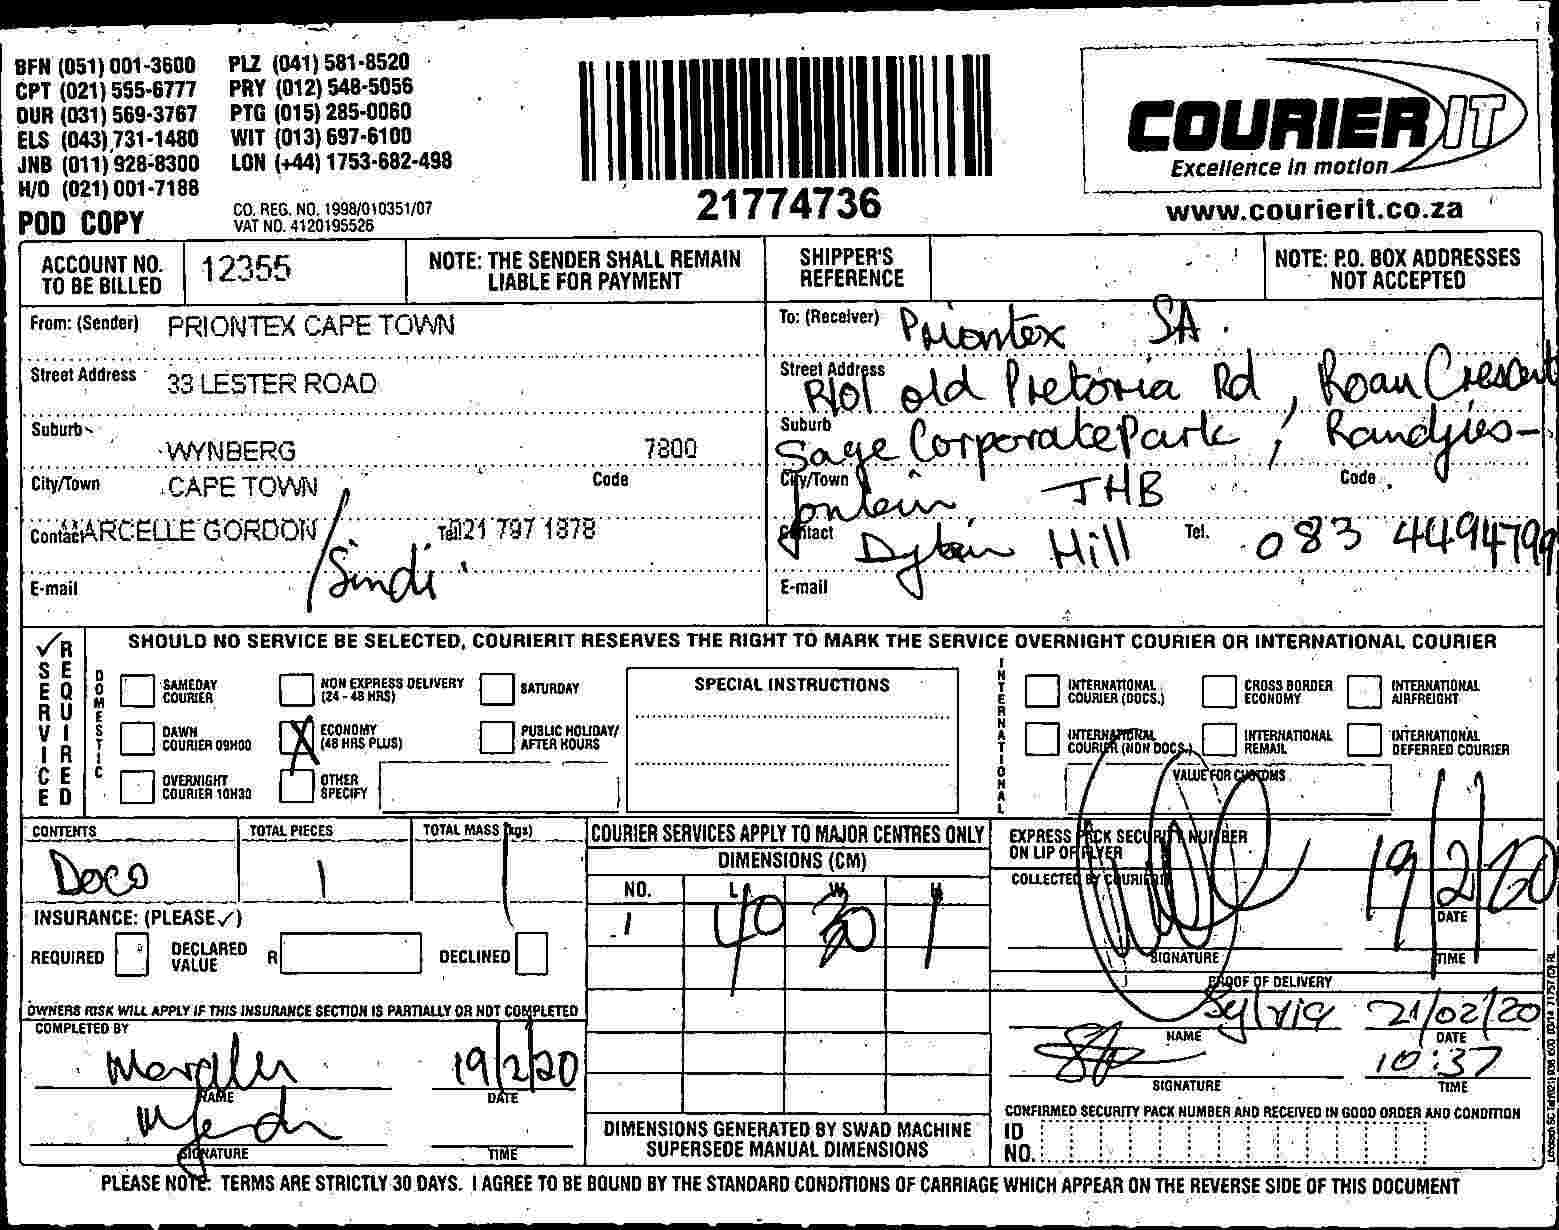 BFN (051) 001-3600 PLZ (041) 581-8520
CPT (021) 555-6777 PRY (012) 548-5056
DUR (031) 569-3767 PTG (015) 285-0060
ELS (043) 731-1480 WIT (013) 697-6100
JNB (011) 928-8300 LON (+44) 1753-682-498
H/O (021) 001-7188
POD COPY
CO. REG. NO. 1998/010351/07
VAT NO. 4120195526
21774736
COURIER IT
Excellence in motion
www.courierit.co.za
ACCOUNT NO. TO BE BILLED 12355
NOTE: THE SENDER SHALL REMAIN LIABLE FOR PAYMENT
SHIPPER'S REFERENCE
NOTE: P.O. BOX ADDRESSES NOT ACCEPTED
From: (Sender) PRIONTEX CAPE TOWN
Street Address 33 LESTER ROAD
Suburb WYNBERG 7800
City/Town CAPE TOWN Code
Contact MARCELLE GORDON /Sindi Tel 021 797 1878
E-mail
To: (Receiver) Priontex SA.
Street Address R101 old Pretoria Rd, Roan Crescent
Suburb Sage Corporate Park, Randjies-
City/Town fontein JHB Code
Contact Dylan Hill Tel. 083 4494799
E-mail
SERVICE REQUIRED
SHOULD NO SERVICE BE SELECTED, COURIERIT RESERVES THE RIGHT TO MARK THE SERVICE OVERNIGHT COURIER OR INTERNATIONAL COURIER
DOMESTIC
SAMEDAY COURIER
NON EXPRESS DELIVERY (24 - 48 HRS)
SATURDAY
DAWN COURIER 09H00
X ECONOMY (48 HRS PLUS)
PUBLIC HOLIDAY/ AFTER HOURS
OVERNIGHT COURIER 10H30
OTHER SPECIFY
SPECIAL INSTRUCTIONS
INTERNATIONAL
INTERNATIONAL COURIER (DOCS.)
CROSS BORDER ECONOMY
INTERNATIONAL AIRFREIGHT
INTERNATIONAL COURIER (NON DOCS.)
INTERNATIONAL REMAIL
INTERNATIONAL DEFERRED COURIER
VALUE FOR CUSTOMS
CONTENTS Docs
TOTAL PIECES 1
TOTAL MASS (kgs) 1
INSURANCE: (PLEASE ✓)
REQUIRED DECLARED VALUE R DECLINED
OWNERS RISK WILL APPLY IF THIS INSURANCE SECTION IS PARTIALLY OR NOT COMPLETED
COMPLETED BY
19/2/20
NAME DATE
SIGNATURE TIME
COURIER SERVICES APPLY TO MAJOR CENTRES ONLY
DIMENSIONS (CM)
NO. L W H
1 40 30 1
DIMENSIONS GENERATED BY SWAD MACHINE SUPERSEDE MANUAL DIMENSIONS
EXPRESS PACK SECURITY NUMBER ON LIP OF FLYER
COLLECTED BY COURIERIT
19/2/20
DATE
SIGNATURE TIME
PROOF OF DELIVERY
Sylvia 21/02/20
NAME DATE
10:37
SIGNATURE TIME
CONFIRMED SECURITY PACK NUMBER AND RECEIVED IN GOOD ORDER AND CONDITION
ID NO.
PLEASE NOTE: TERMS ARE STRICTLY 30 DAYS. I AGREE TO BE BOUND BY THE STANDARD CONDITIONS OF CARRIAGE WHICH APPEAR ON THE REVERSE SIDE OF THIS DOCUMENT